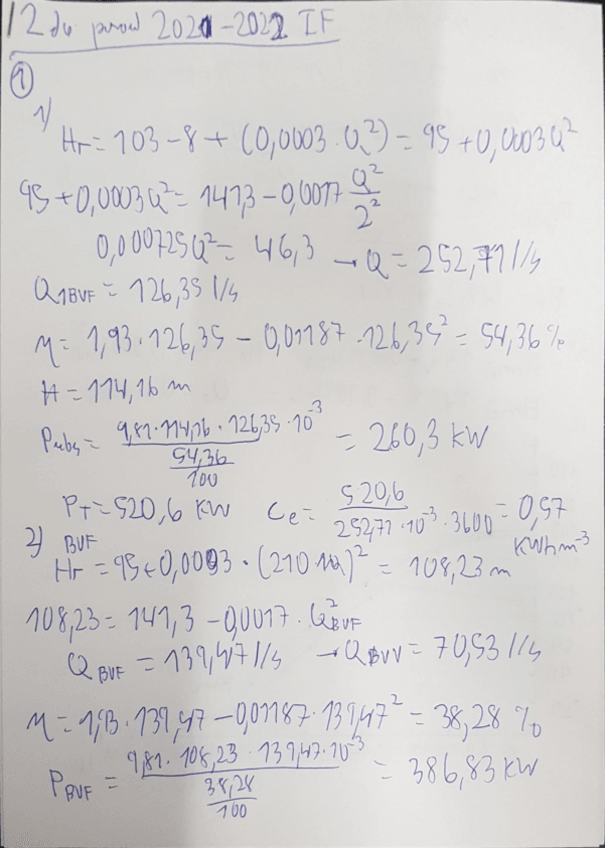 12 du parcial 2021-2022 IF
①
1)
Hr = 103 - 8 + (0,0003 · Q²) = 95 + 0,0003Q²
95 + 0,0003Q² = 141,3 - 0,0017 Q²/2²
0,000725Q² = 46,3 → Q = 252,71 l/s
Q1BVF = 126,35 l/s
η = 1,93 · 126,35 - 0,01187 · 126,35² = 54,36 %
H = 114,16 m
Pabs = 9,81 · 114,16 · 126,35 · 10⁻³ / (54,36/100) = 260,3 kW
PT = 520,6 kW Ce = 520,6 / (252,71 · 10⁻³ · 3600) = 0,57 kWh m⁻³
2) BVF
Hr = 95 + 0,0003 · (210)² = 108,23 m
108,23 = 141,3 - 0,0017 · Q²BVF
QBVF = 139,47 l/s → QBVV = 70,53 l/s
η = 1,93 · 139,47 - 0,01187 · 139,47² = 38,28 %
PBVF = 9,81 · 108,23 · 139,47 · 10⁻³ / (38,28/100) = 386,83 kW